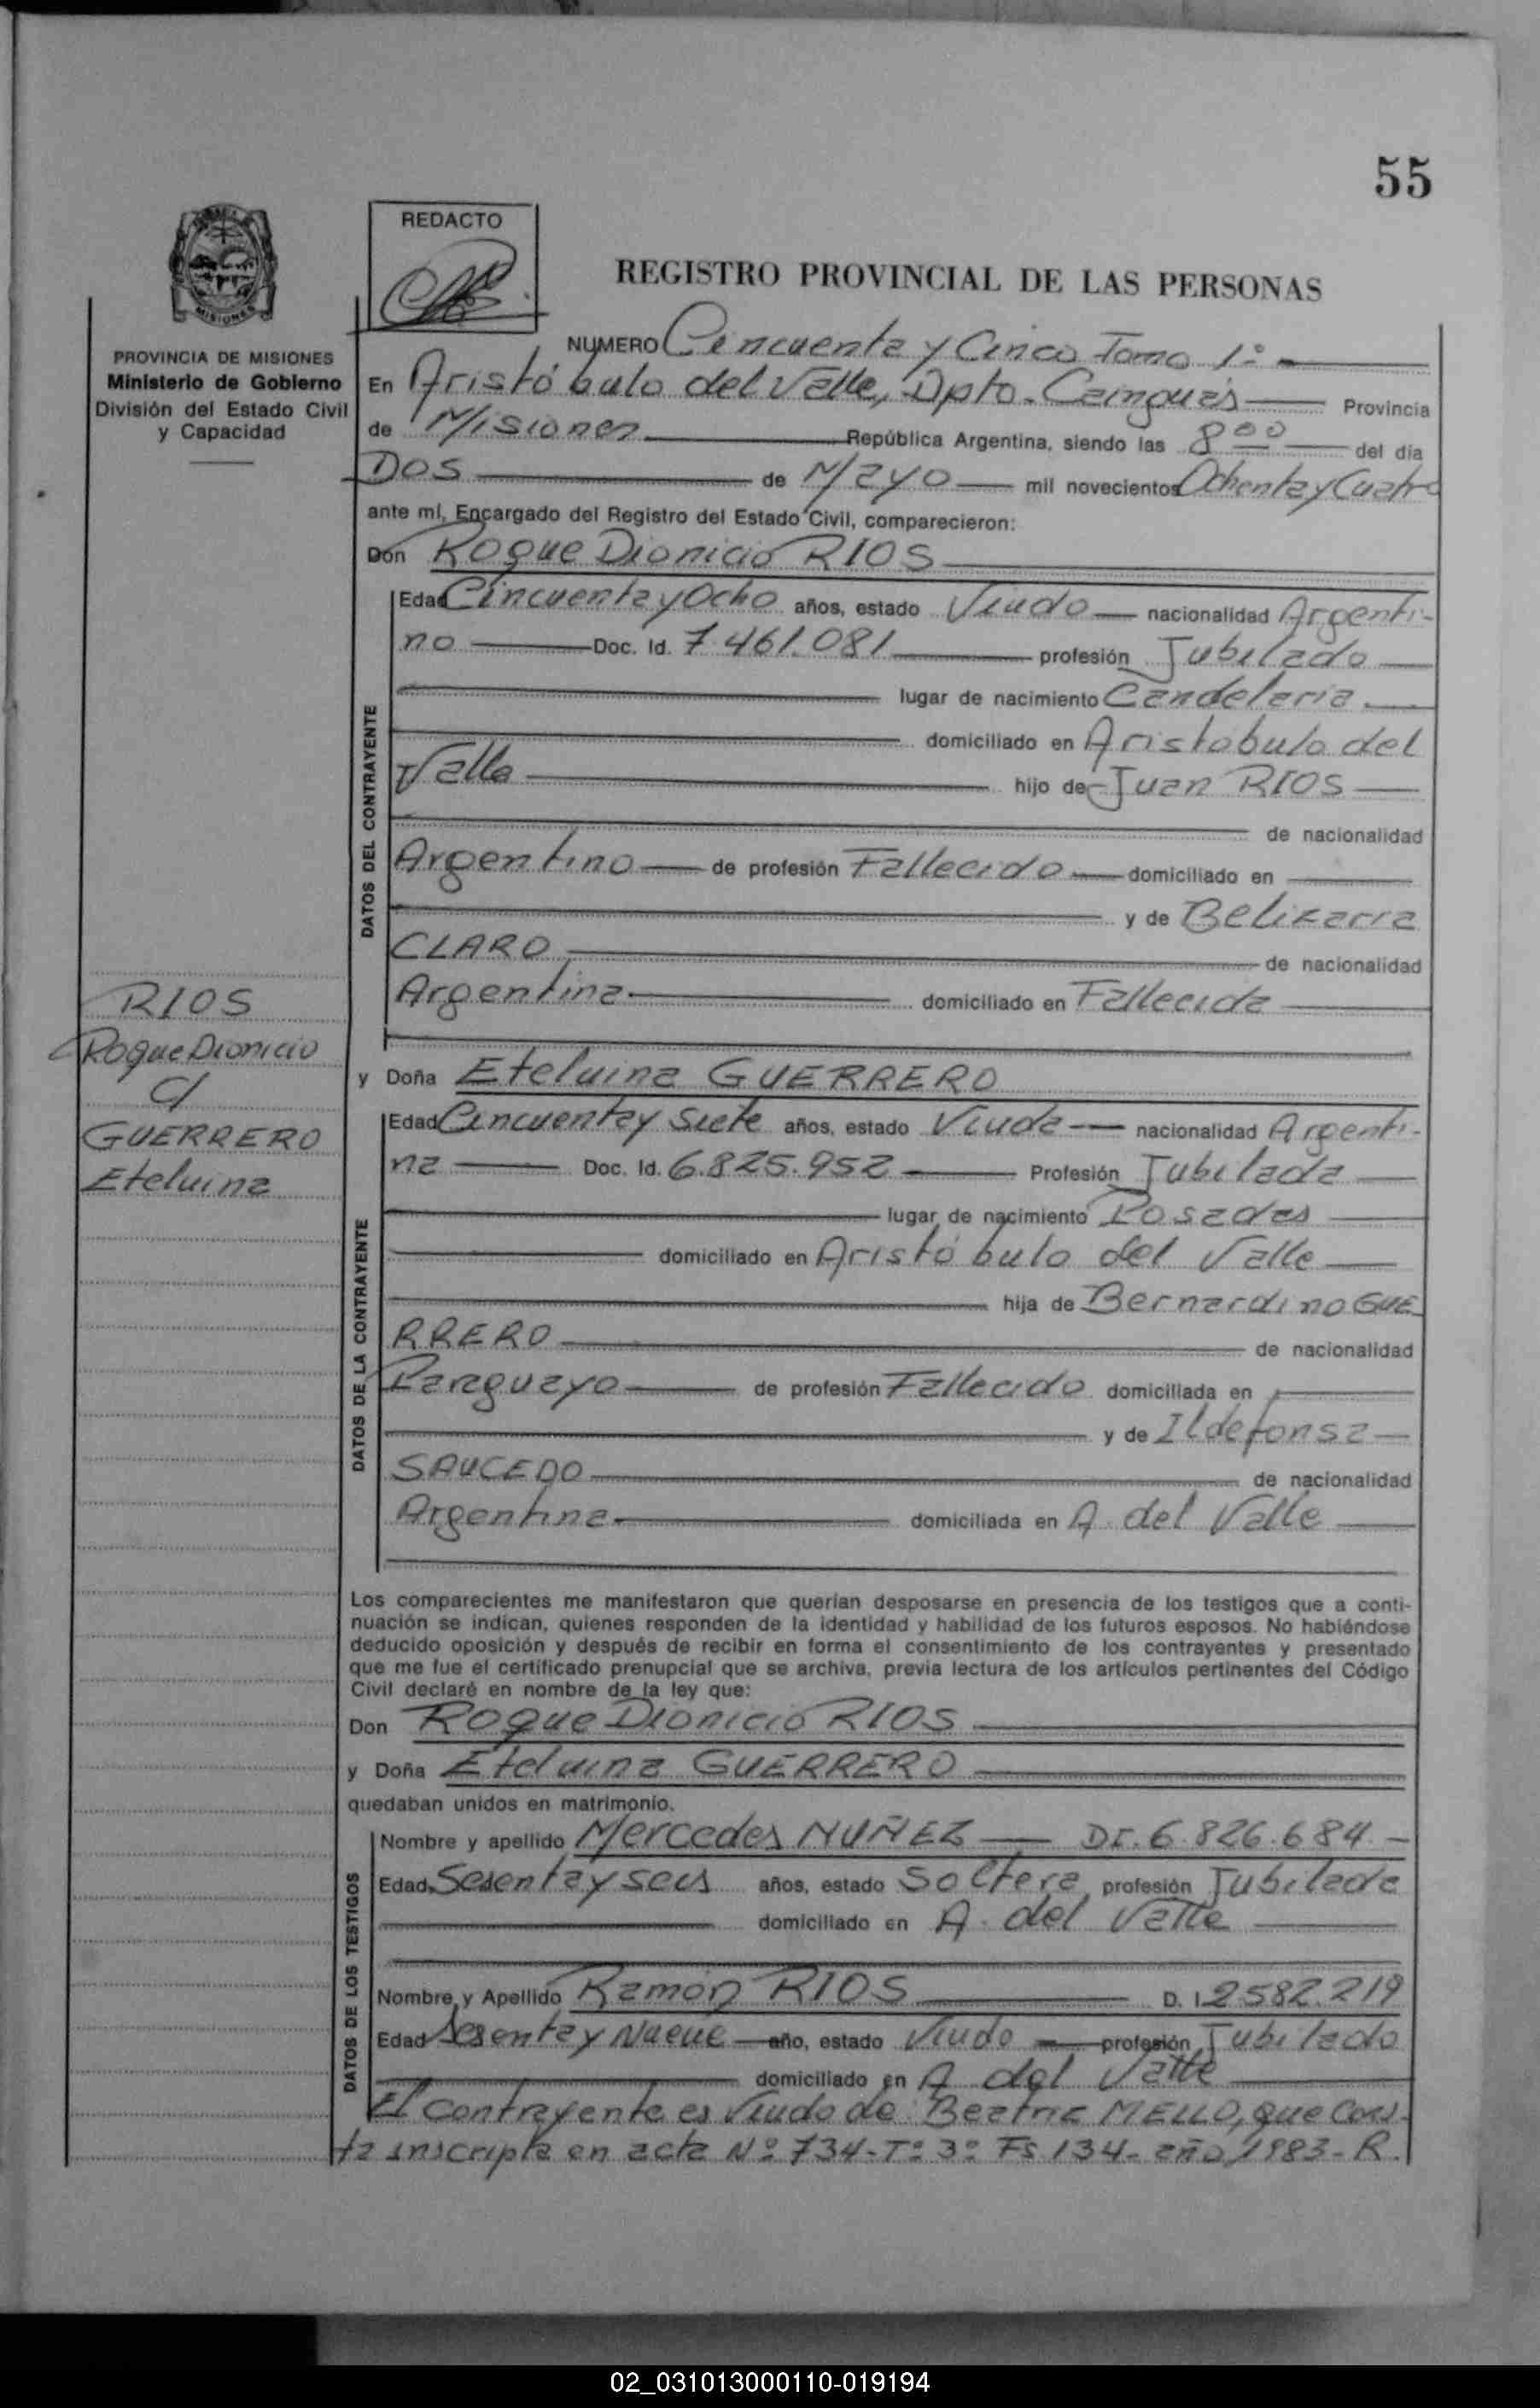 55
REDACTO
REGISTRO PROVINCIAL DE LAS PERSONAS
MISIONES
PROVINCIA DE MISIONES
Ministerio de Gobierno
División del Estado Civil
y Capacidad
NUMERO Cincuenta y Cinco Tomo 1º
En Aristóbulo del Valle, Dpto. Cainguás Provincia
de Misiones República Argentina, siendo las 8 00 del día
DOS de Mayo mil novecientos Ochenta y Cuatro
ante mí, Encargado del Registro del Estado Civil, comparecieron:
Don Roque Dionicio RIOS
Edad Cincuenta y Ocho años, estado Viudo nacionalidad Argenti-
no Doc. Id. 7.461.081 profesión Jubilado
lugar de nacimiento Candelaria.
domiciliado en Aristobulo del
Valle hijo de Juan RIOS
de nacionalidad
Argentino de profesión Fallecido domiciliado en
y de Belizarra
CLARO de nacionalidad
Argentina domiciliado en Fallecida
DATOS DEL CONTRAYENTE
RIOS
Roque Dionicio
c/
GUERRERO
Eteluina
y Doña Eteluina GUERRERO
Edad Cincuenta y Siete años, estado Viuda nacionalidad Argenti-
na Doc. Id. 6.825.952 Profesión Jubilada
lugar de nacimiento Posadas
domiciliado en Aristóbulo del Valle
hija de Bernardino GUE
RRERO de nacionalidad
Paraguayo de profesión Fallecido domiciliada en
y de Ildefonsa
SAUCEDO de nacionalidad
Argentina domiciliada en A. del Valle
DATOS DE LA CONTRAYENTE
Los comparecientes me manifestaron que querían desposarse en presencia de los testigos que a conti-
nuación se indican, quienes responden de la identidad y habilidad de los futuros esposos. No habiéndose
deducido oposición y después de recibir en forma el consentimiento de los contrayentes y presentado
que me fue el certificado prenupcial que se archiva, previa lectura de los artículos pertinentes del Código
Civil declaré en nombre de la ley que:
Don Roque Dionicio RIOS
y Doña Eteluina GUERRERO
quedaban unidos en matrimonio.
Nombre y apellido Mercedes NUÑEZ DI. 6.826.684
Edad Sesenta y seis años, estado Soltera profesión Jubilada
domiciliado en A. del Valle
Nombre y Apellido Ramón RIOS D. I 2582.219
Edad Sesenta y Nueve año, estado Viudo profesión Jubilado
domiciliado en A del Valle
DATOS DE LOS TESTIGOS
El contrayente es Viudo de Beatriz MELLO, que cons-
ta inscripta en acta Nº 734-Tº 3º Fs 134- año 1983-R.
02_031013000110-019194